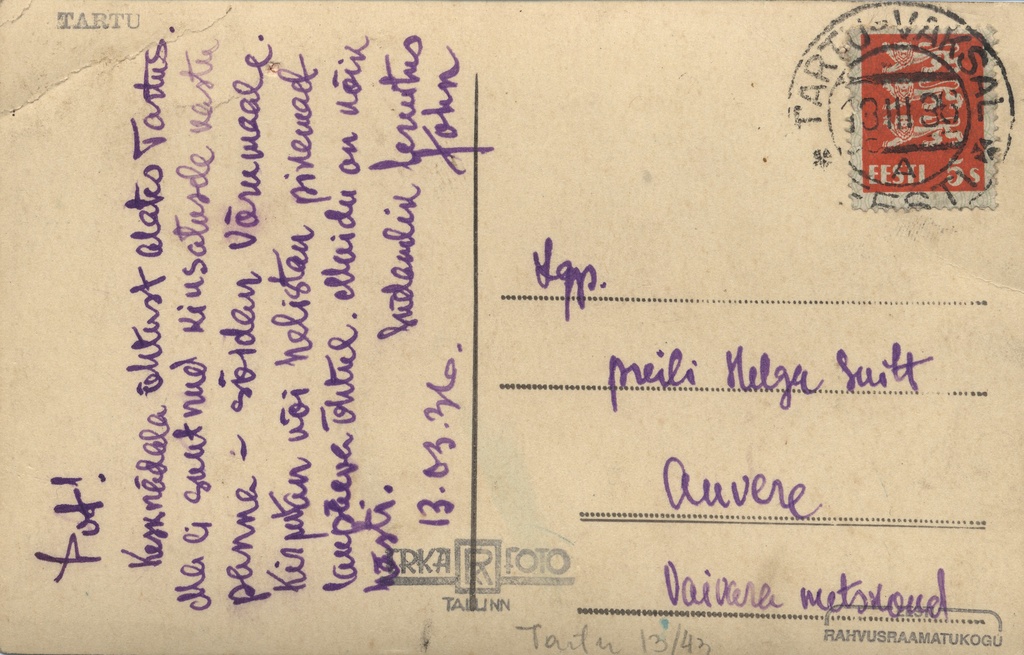 TARTU
Kesknädala õhtust alates Tartus.
Ma ei suutnud kiusatusele vastu
panna – sõidan Võrumaale.
Kirjutan või helistan pikemalt
laupäeva õhtul. Muidu on kõik
hästi. Südamlik tervitus
13.03.36. John
TARTU-VAKSAL
13 III 36
A
EESTI
EESTI 5 S
Lgp.
preili Helga Suitt
Auvere
Vaivara metskond
PARKA FOTO
TALLINN
Tartu 13/43
RAHVUSRAAMATUKOGU